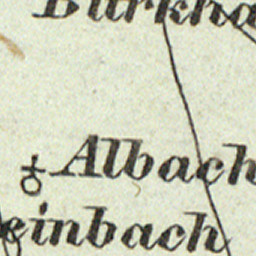 Burkha
Albach
einbach